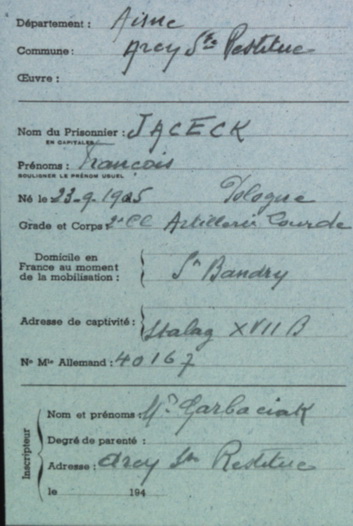 Département : Aisne
Commune : Arcy Ste Restitue
Œuvre :
Nom du Prisonnier : JACECK
EN CAPITALES
Prénoms : François
SOULIGNER LE PRÉNOM USUEL
Né le 23-9-1905 Pologne
Grade et Corps : 2e Cl Artillerie Lourde
Domicile en
France au moment
de la mobilisation : St Bandry
Adresse de captivité : Stalag XVII B
No Mle Allemand : 40167
Inscripteur
Nom et prénoms : Mr Garbaciak
Degré de parenté :
Adresse : Arcy Ste Restitue
le 194